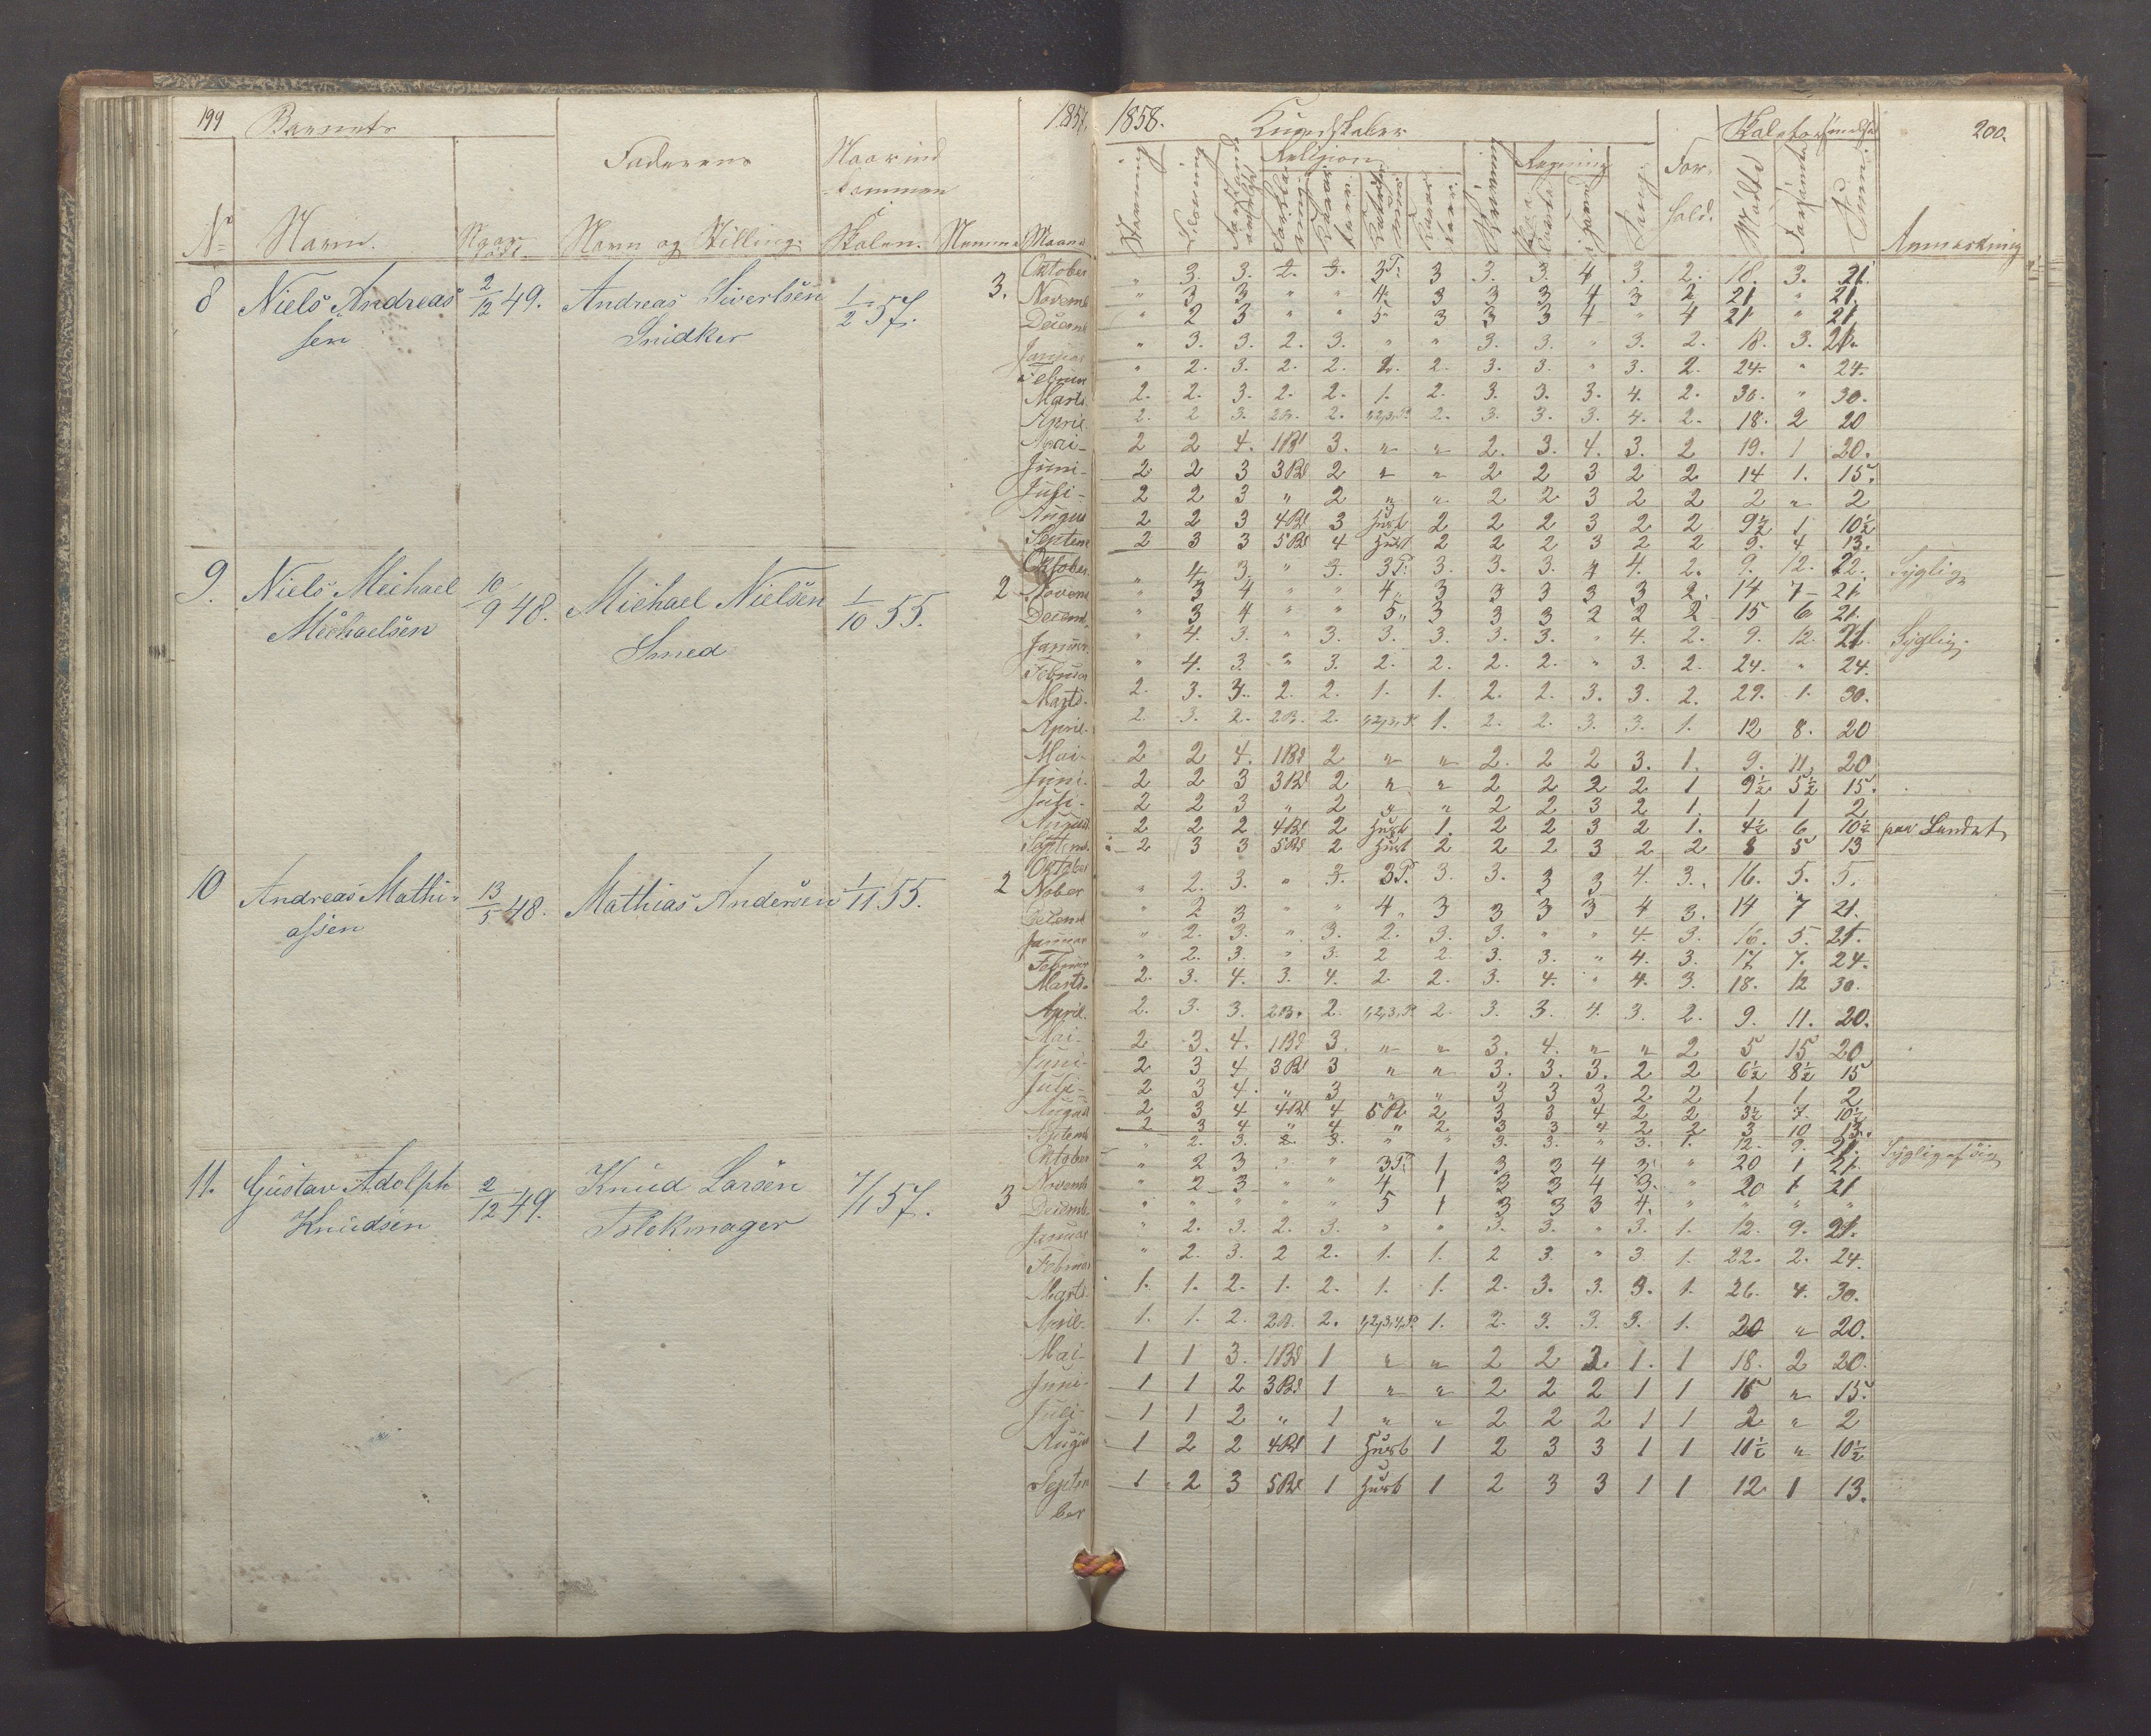 199 Barnets 1857.
Faderens Naar ind
kommen
No Navn. Naar født. Navn og Stilling. Skolen. Numme Maan
8 Niels Andreas 2/12 49. Andreas Sivertsen 1/2 57. 3. Oktober
sen Snidker
Novemb
Decemb
Januar
Februar
Marts.
April.
Mai-
Juni-
Juli-
August
Septem
9. Niels Meichael 10/9 48. Michael Nielsen 1/10 55. 2 Oktober.
Michaelsen Smed
Novem
Decemb.
Januar.
Februar
Marts.
April.
Mai-
Juni-
Juli-
August.
Septemb.
10 Andreas Mathi- 13/5 48. Mathias Andersen 1/11 55. 2 Oktober
assen
Nober
Decemb
Januar
Februar
Marts.
April.
Mai-
Juni-
Juli-
August
Septemb
11. Gustav Adolph 2/12 49. Knud Larsen 7/1 57. 3 Oktober
Knudsen Blokmager
Novemb
Decemb.
Januar
Februar
Marts.
April.
Mai-
Juni-
Juli-
August
Septem
ber
1858. Kundskaber Skolesøgmelse 200.
Religion Regning For-
hold. Mødte Forsømte Sum. Anmærkning
" 3. 3. 2. 3. 3P. 3 3. 3. 4 3. 2. 18. 3. 21.
" 3 3 " " 4. 3 3 3 4 3 2 21 " 21.
" 2 3 " " 5" 3 3 3 4 " 4 21 " 21
" 3. 3. 2. 3. " " 3. 3. " 3. 2. 18. 3. 21.
" 2. 3. 2. 2. 2. 2. 3. 3. " 3. 2. 24. " 24.
2. 2. 3. 2. 2. 1. 2. 3. 3. 3. 4. 2. 30. " 30.
2. 2 3. 2B. 2. 1,2,3,P. 2. 3. 3. 3. 4. 2. 18. 2 20
2 2 4. 1Bd 3. " " 2. 3. 4. 3. 2 19. 1 20.
2 2 3 3Bd 2 " " 2 2 3 2 2 14 1. 15.
2 2 3 " 2 " " 2 2 3 2 2 2 " 2
2 2 3 4Bd 3 Hust 2 2 2 3 2 2 9½ 1 10½
2 3 3 5Bd 4 Hust 2 2 2 3 2 2 9. 4 13.
" 4 3. " 3. 3P. 3. 3. 3. 4 4. 2. 9. 12. 22. Syglig
" 3 4 " " 4" 3 3 3 3 3 2. 14 7 21.
" 3 4 " " 5" 3 3 3 2 2 2 15 6 21.
" 4. 3. " 3. 3. 3. 3. 3. " 4. 2. 9. 12. 21. Syglig.
" 4. 3. " 3. 2. 2. 2. 2. " 3. 2. 24. " 24.
2. 3. 3. 2. 2. 1. 1. 2. 2. 3. 3. 2. 29. 1. 30.
2. 3. 2. 2B. 2. 1,2,3,P. 1. 2. 2. 3. 3. 1. 12 8. 20
2 2 4. 1Bd 2 " " 2. 2 2 3. 1. 9. 11, 20
2 2 3 3Bd 2 " " 2 2 2 2 1 9½ 5½ 15.
2 2 3 " 2 " " 2 2 3 2 1. 1 1 2
2 2 2 4Bd 2 Hust 1. 2 2 3 2 1. 4½ 6 10½ paa Landet
2 3 3 5Bd 2 Hust 2 2 2 3 2 2 8 5 13
" 2. 3. " 3. 3P. 3. 3. 3 3 4. 3. 16. 5. 5.
" 2 3 " " 4" 3 3 3 3 4 3. 14 7 21.
" 2. 3. " 3. 2. 3. 3. " " 4. 3. 16. 5. 21.
" 2. 3. " 3. 2 2. 3. 3. " 4. 3. 17. 7. 24.
2. 3. 4. 3. 4. 2. 2. 3. 4. " 4. 3. 18. 12 30.
2. 3. 3. 2B. 2. 1,2,3,P. 2. 3. 3. 4. 3. 2. 9. 11. 20.
2 3. 4. 1Bd 3. " " 3. 4. " " 2 5 15 20
2 3 4 3Bd 3 " " 3. 3. 3. 2 2 6½ 8½ 15
2 3 4. " 3 " " 3 3 3 2 2 1 1 2
2 3 4 4Bd 4 5Bd 2 3 3 4 2 2 3½ 7. 10½
2 3 4 " 4 " 2 3 3 4 2 2 3 10 13.
" 2. 3. 2. 3. " " 3. 3. " 3. 1. 12. 9. 21. Syglig af sig
" 2 3 " " 3P. 1 3 3 4 3. " 20 1 21
" 2 3 " " 4 1 3 3 4 3. " 20 1 21
" " " " " 5 1 3 3 3 4. " " " "
" 2. 3. 2. 3. " " 3. 3. " 3. 1. 12. 9. 21.
" 2. 3. 2 2. 1. 1. 2 3. " 3 1. 22. 2. 24.
1. 1. 2. 1. 2. 1. 1. 2. 3. 3. 3. 1. 26. 4. 30.
1. 1. 2. 2B. 2. 1,2,3,4,P. 1. 2. 3. 3. 3. 1. 20 " 20.
1 1 3. 1Bd 1 " " 2 2 2. 1. 1 18. 2 20.
1 1 2 3Bd 1 " " 2 2 2 1 1 15 " 15.
1 1 2 " 1 " " 2 2 2 1 1 2 " 2
1 2 2 4Bd 1 Hust 1 2 3 3 1 1 10½ " 10½
1 2 3 5Bd 1 Hust 1 2 3 3 1 1 12. 1 13.